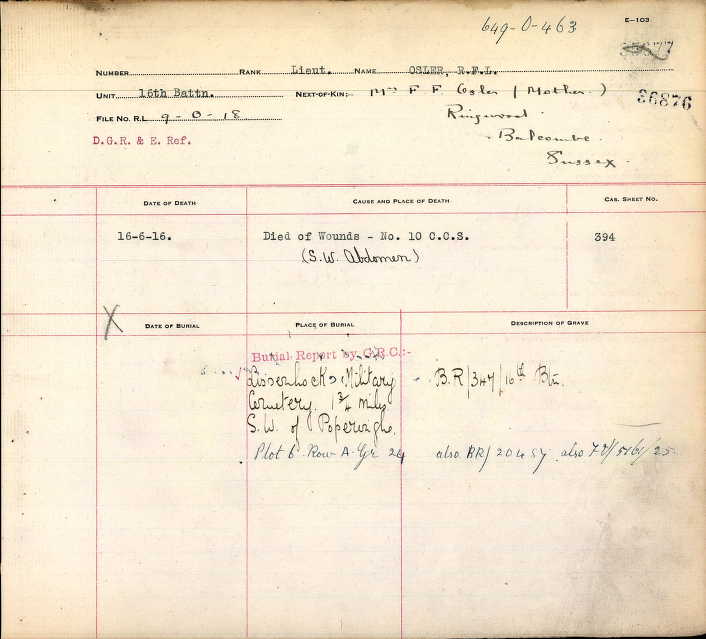 649-O-463
E-103
NUMBER RANK Lieut. NAME OSLER, R.F.L.
UNIT 16th Battn. NEXT-OF-KIN:- Mrs F F Osler (Mother.)
36876
FILE NO. R.L. 9-O-18 Ringwood
D.G.R. & E. Ref. Balcombe
Sussex
DATE OF DEATH CAUSE AND PLACE OF DEATH CAS. SHEET NO.
16-6-16. Died of Wounds - No. 10 C.C.S. 394
(S.W. Abdomen)
X DATE OF BURIAL PLACE OF BURIAL DESCRIPTION OF GRAVE
Burial Report by G.R.C.:-
Lissenhoek Military B.R/347/16th Btn.
Cemetery. 1 3/4 miles
S.W. of Poperinghe.
Plot 6 Row A Gr 24 also BR/20457 also